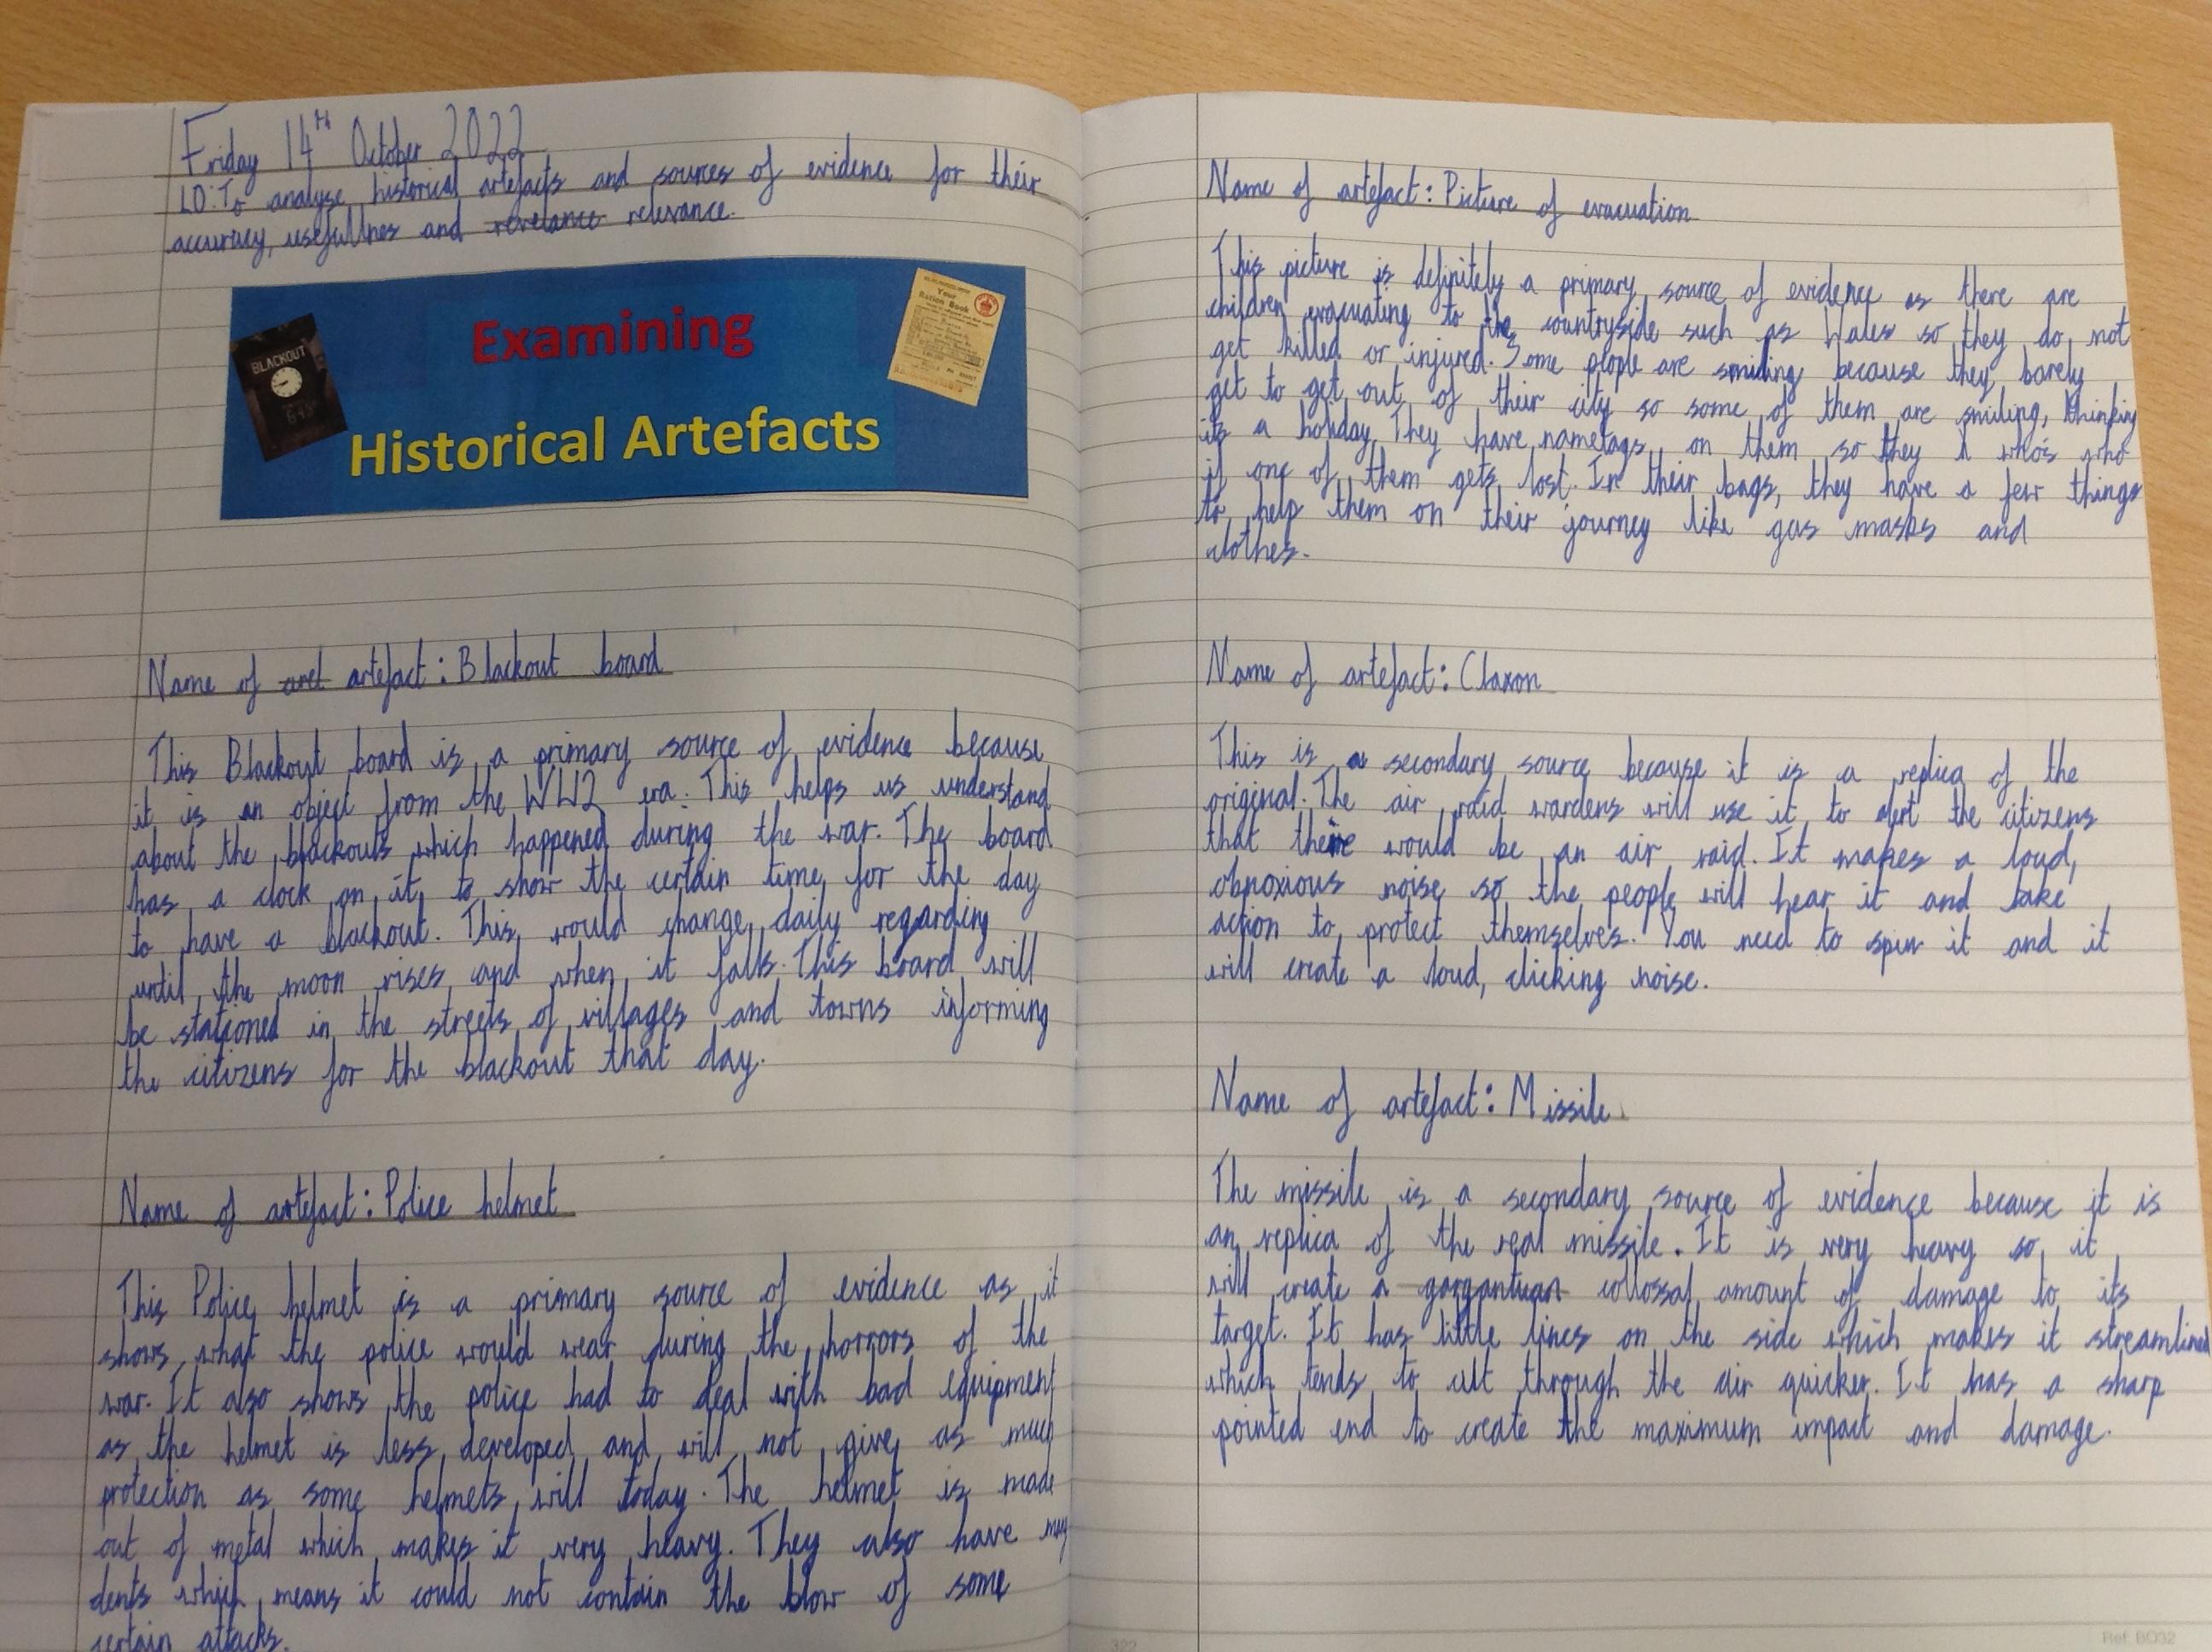 Friday 14th October 2022
LO: To analyse historical artefacts and sources of evidence for their
accuracy, usefullnes and revelance relevance.
BLACKOUT
Examining
Historical Artefacts
Your
Ration Book
Name of aret artefact: Blackout board
This Blackout board is a primary source of evidence because
it is an object from the WW2 era. This helps us understand
about the blackouts which happened during the war. The board
has a clock on it to show the certain time for the day
to have a blackout. This would change daily regarding
until the moon rises and when it falls. This board will
be stationed in the streets of villages and towns informing
the citizens for the blackout that day.
Name of artefact: Police helmet
This Police helmet is a primary source of evidence as it
shows what the police would wear during the horrors of the
war. It also shows the police had to deal with bad equipment
as the helmet is less developed and will not give as much
protection as some helmets will today. The helmet is made
out of metal which makes it very heavy. They also have
dents which means it could not contain the blow of some
certain attacks.
322
Name of artefact: Picture of evacuation
This picture is definitely a primary source of evidence as there are
children evacuating to the countryside such as Wales so they do not
get killed or injured. Some people are smiling because they barely
get to get out of their city so some of them are smiling, thinking
its a holiday. They have nametags on them so they who's who
if one of them gets lost. In their bags, they have a few things
to help them on their journey like gas masks and
clothes.
Name of artefact: Claxon
This is a secondary source because it is a replica of the
original. The air raid wardens will use it to alert the citizens
that there would be an air raid. It makes a loud,
obnoxious noise so the people will hear it and take
action to protect themselves. You need to spin it and it
will create a loud, clicking noise.
Name of artefact: Missile
The missile is a secondary source of evidence because it is
an replica of the real missile. It is very heavy so it
will create a gargantuan collossal amount of damage to its
target. It has little lines on the side which makes it streamlined
which tends to cut through the air quicker. It has a sharp
pointed end to create the maximum impact and damage.
Ref: BO32